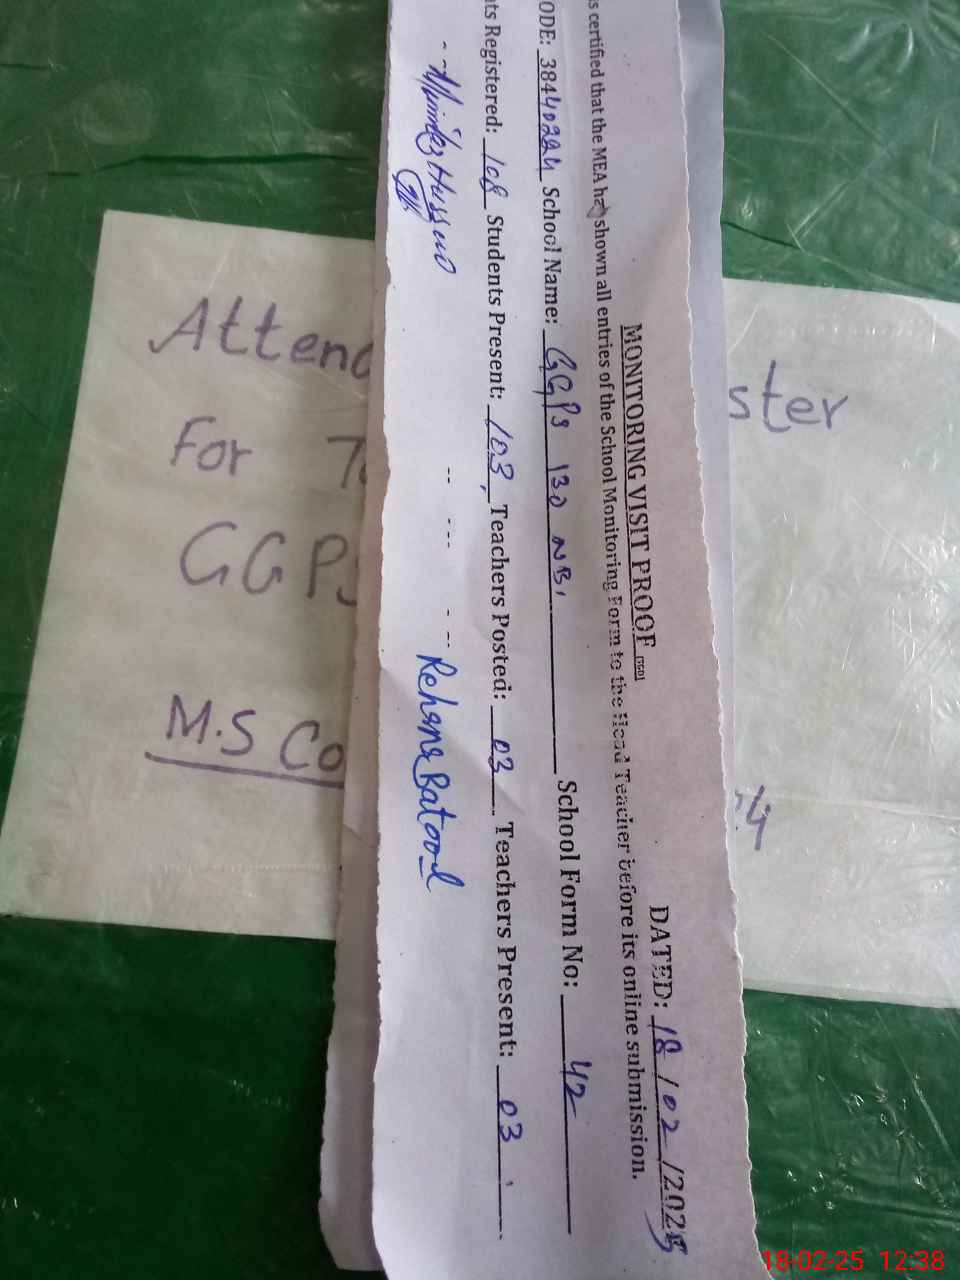 MONITORING VISIT PROOF
DATED: 18/02/2025
is certified that the MEA has shown all entries of the School Monitoring Form to the Head Teacher before its online submission.
ODE: 38440224 School Name: GGPS 130 NB, School Form No: 42
nts Registered: 108 Students Present: 103, Teachers Posted: 03 Teachers Present: 03
Rehana Batool
Attend
ster
For
GGPS
M.S Co
18-02-25 12:38